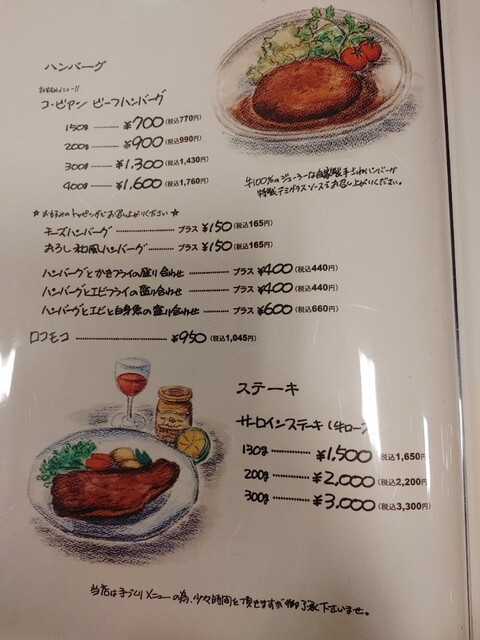 ハンバーグ
おすすめメニュー!!
コ・ビアン ビーフハンバーグ
150g ¥700 (税込770円)
200g ¥900 (税込990円)
300g ¥1,300 (税込1,430円)
400g ¥1,600 (税込1,760円)
牛100%のジューシーな自家製手ごねハンバーグ
特製デミグラスソースでお召し上がりください。
☆お好みのトッピングでお召し上がりください☆
チーズハンバーグ プラス ¥150 (税込165円)
おろし和風ハンバーグ プラス ¥150 (税込165円)
ハンバーグとかきフライの盛り合わせ プラス ¥400 (税込440円)
ハンバーグとエビフライの盛り合わせ プラス ¥400 (税込440円)
ハンバーグとエビと白身魚の盛り合わせ プラス ¥600 (税込660円)
ロコモコ ¥950 (税込1,045円)
ステーキ
サーロインステーキ (牛ロース
130g ¥1,500 (税込1,650円
200g ¥2,000 (税込2,200円
300g ¥3,000 (税込3,300円)
当店は手づくりメニューの為、少々時間を頂きますが御了承下さいませ。